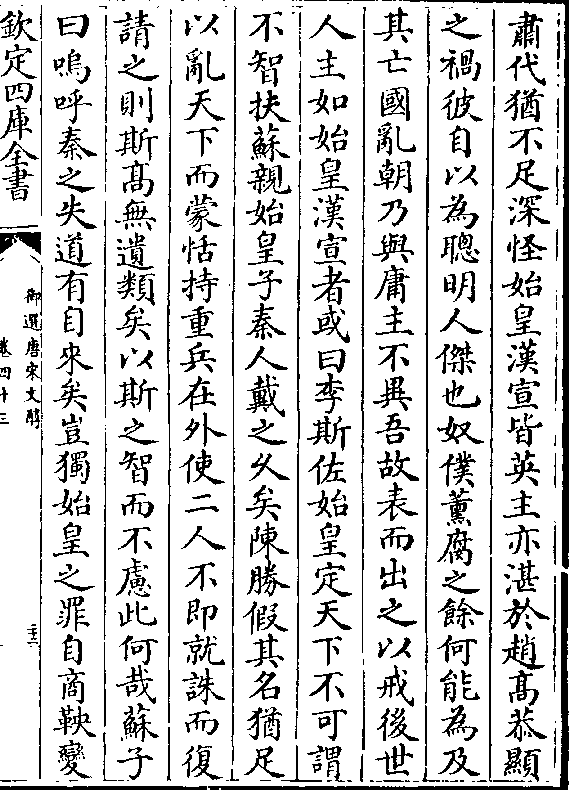 肅代猶不足深怪始皇漢宣皆英主亦湛於趙髙恭顯
之禍彼自以為聰明人傑也奴僕薰腐之餘何能為及
其亡國亂朝乃與庸主不異吾故表而出之以戒後世
人主如始皇漢宣者或曰李斯佐始皇定天下不可謂
不智扶蘇親始皇子秦人戴之久矣陳勝假其名猶足
以亂天下而蒙恬持重兵在外使二人不即就誅而復
請之則斯髙無遺類矣以斯之智而不慮此何哉蘇子
曰嗚呼秦之失道有自來矣豈獨始皇之罪自商鞅變
欽定四庫全書
御選唐宋文醇
卷四十三